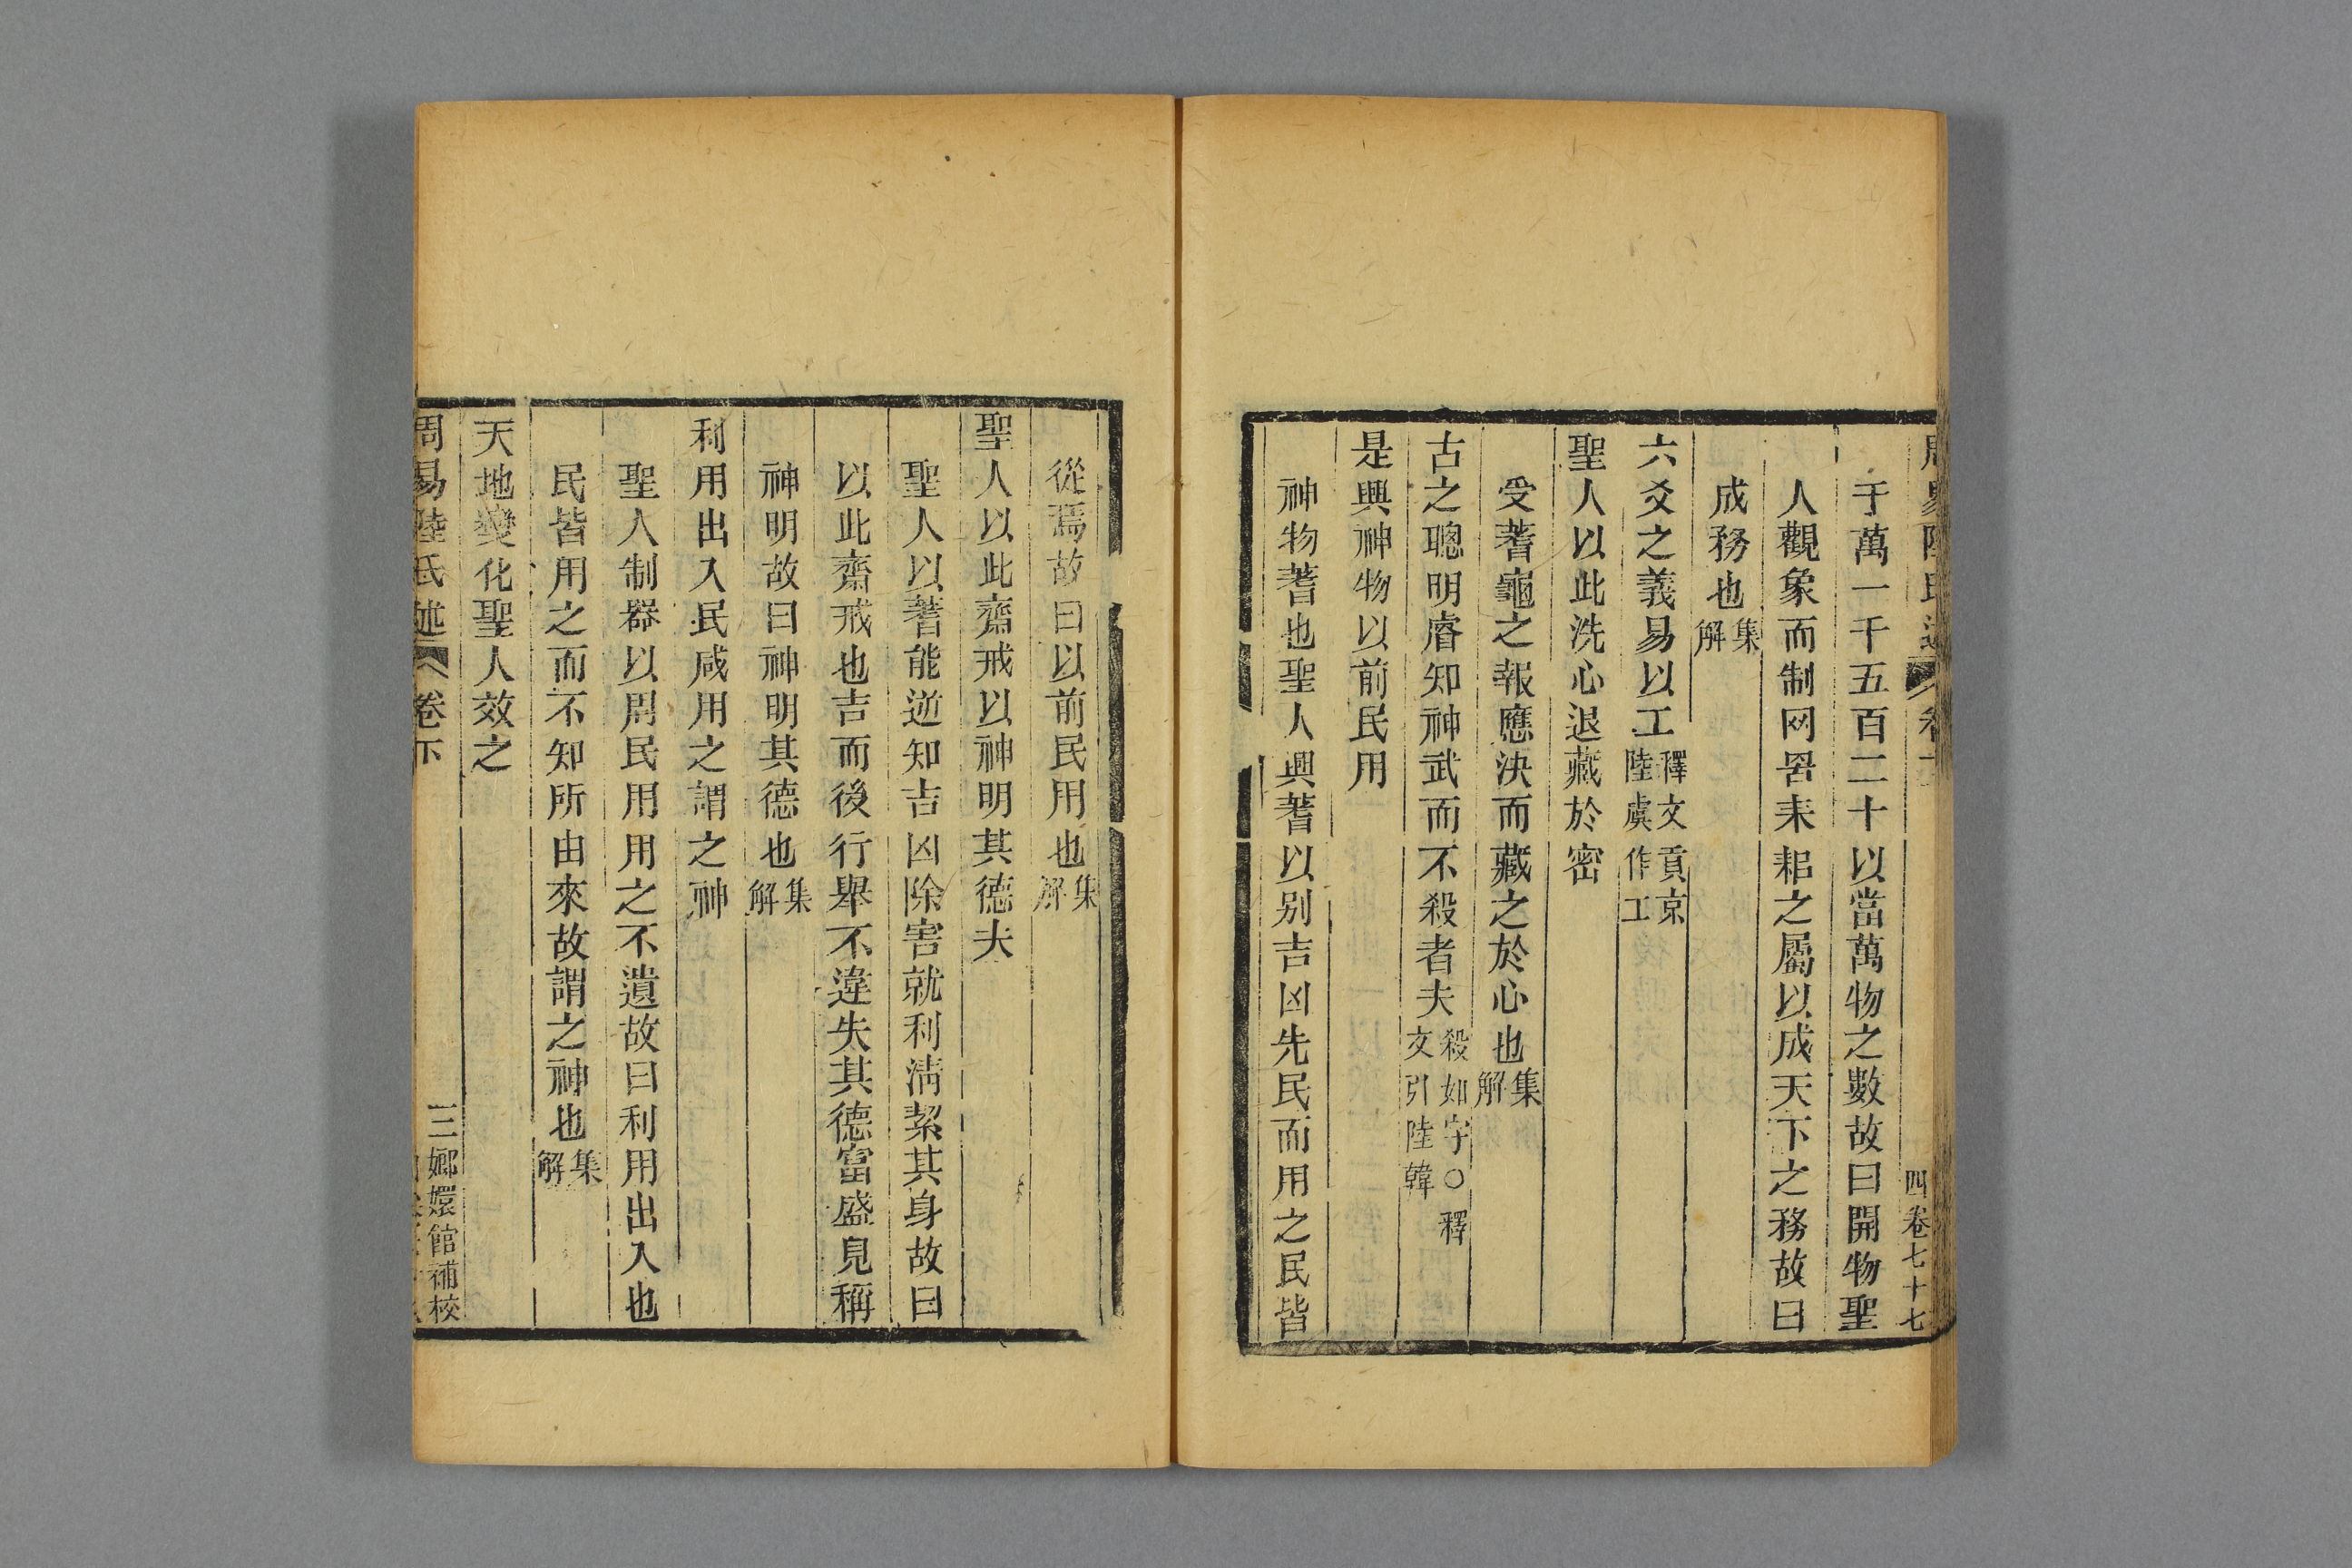 四卷七十七
于萬一千五百二十以當萬物之數故曰開物聖
人觀象而制网罟耒耜之屬以成天下之務故曰
成務也集解
六爻之義易以工釋文貢京陸虞作工
聖人以此洗心退藏於密
受蓍龜之報應決而藏之於心也集解
古之聰明睿知神武而不殺者夫殺如字○釋文引陸韓
是興神物以前民用
神物蓍也聖人興蓍以別吉凶先民而用之民皆
從焉故曰以前民用也集解
聖人以此齋戒以神明其德夫
聖人以蓍能逆知吉凶除害就利淸絜其身故曰
以此齋戒也吉而後行舉不違失其德富盛見稱
神明故曰神明其德也集解
利用出入民咸用之謂之神
聖人制器以周民用用之不遺故曰利用出入也
民皆用之而不知所由來故謂之神也集解
天地變化聖人效之
周易陸氏述 卷下
三嫏嬛館補校